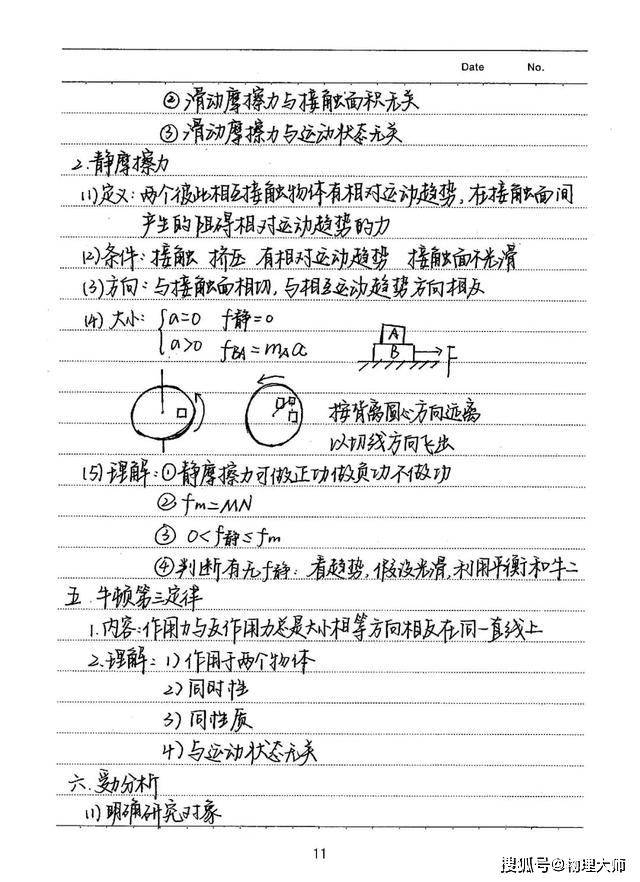 Date No.
②滑动摩擦力与接触面积无关
③滑动摩擦力与运动状态无关
2.静摩擦力
(1)定义:两个彼此相互接触物体有相对运动趋势,在接触面间
产生的阻碍相对运动趋势的力
(2)条件:接触 挤压 有相对运动趋势 接触面不光滑
(3)方向:与接触面相切,与相互运动趋势方向相反
(4)大小: {a=0 f静=0
a>0 fBA=mAa
A
B
F
按背离圆心方向远离
以切线方向飞出
(5)理解:①静摩擦力可做正功做负功不做功
②fm=μN
③ 0<f静≤fm
④判断有无f静:看趋势,假设光滑,利用平衡和牛二
五.牛顿第三定律
1.内容:作用力与反作用力总是大小相等方向相反在同一直线上
2.理解:1)作用于两个物体
2)同时性
3)同性质
4)与运动状态无关
六.受力分析
(1)明确研究对象
11
搜狐号@物理大师